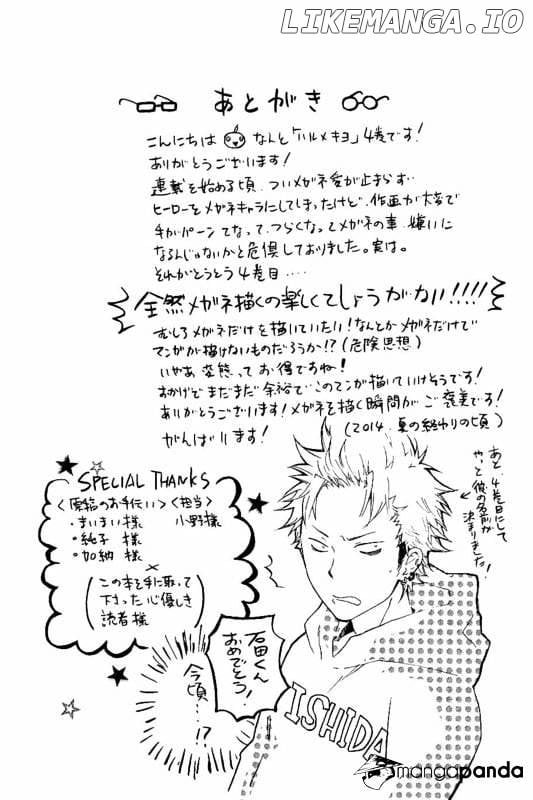 LIKEMANGA.IO
あとがき
こんにちは なんと「ハルメキヨ」4巻です!
ありがとうございます!
連載を始める頃、ついメガネ愛が止まらず…
ヒーローをメガネキャラにしてしまったけど、作画が大変で
手がパーンてなって、つらくなってメガネの事、嫌いに
なるんじゃないかと危惧しておりました。実は。
それがとうとう4巻目....
全然メガネ描くの楽しくてしょうがない!!!!
むしろメガネだけを描いていたい!なんとかメガネだけで
マンガが描けないものだろうか!?(危険思想)
いやあ 変態って お得ですね!
おかげでまだまだ余裕で このマンガ描いていけそうです!
ありがとうございます!メガネを描く瞬間がご褒美です!
がんばります!
(2014.夏の終わりの頃)
あと、4巻目にして
やっと彼の名前が
決まりました!
SPECIAL THANKS
<原稿のお手伝い> <担当>
・まいまい様 小野様
・純子様
・加納様
×
(この本を手に取って
下さった心優しき
読者様)
石田くん
おめでとう!
今頃…!?
ISHIDA
mangapanda